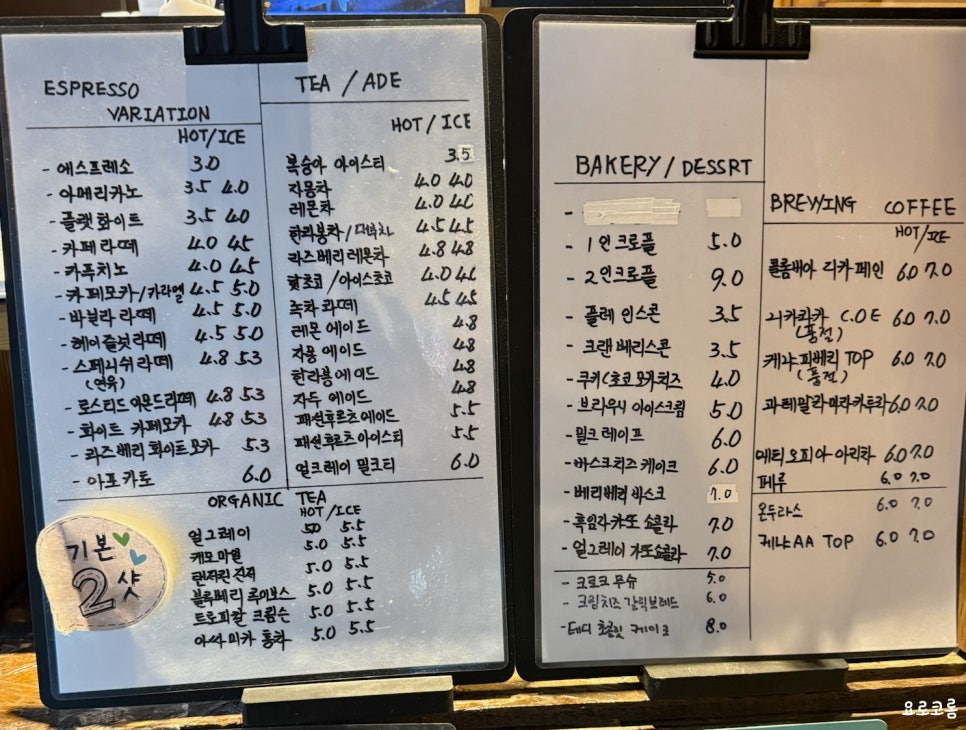 ESPRESSO
VARIATION
HOT/ICE
- 에스프레소 3.0
- 아메리카노 3.5 4.0
- 플랫화이트 3.5 4.0
- 카페라떼 4.0 4.5
- 카푸치노 4.0 4.5
- 카페모카/카라멜 4.5 5.0
- 바닐라 라떼 4.5 5.0
- 헤이즐넛라떼 4.5 5.0
- 스페니쉬라떼 4.8 5.3
(연유)
- 로스티드아몬드라떼 4.8 5.3
- 화이트 카페모카 4.8 5.3
- 라즈베리화이트모카 5.3
- 아포카토 6.0
TEA / ADE
HOT / ICE
복숭아 아이스티 3.5
자몽차 4.0 4.0
레몬차 4.0 4.0
한라봉차/대추차 4.5 4.5
라즈베리레몬차 4.8 4.8
핫초코/아이스초코 4.0 4.5
녹차라떼 4.5 4.5
레몬에이드 4.8
자몽에이드 4.8
한라봉에이드 4.8
자두에이드 4.8
패션후르츠에이드 5.5
패션후르츠아이스티 5.5
얼그레이 밀크티 6.0
ORGANIC TEA
HOT/ICE
얼그레이 5.0 5.5
캐모마일 5.0 5.5
탠저린진저 5.0 5.5
블루베리 루이보스 5.0 5.5
트로피칼 크림슨 5.0 5.5
아싸미카 홍차 5.0 5.5
기본
2샷
BAKERY / DESSRT
- 1인크로플 5.0
- 2인크로플 9.0
- 플레인스콘 3.5
- 크랜베리스콘 3.5
- 쿠키(초코 모카치즈 4.0
- 브라우니 아이스크림 5.0
- 밀크레이프 6.0
- 바스크치즈 케이크 6.0
- 베리베리 바스크 7.0
- 흑임자가또 쇼콜라 7.0
- 얼그레이 가또쇼콜라 7.0
- 크로크무슈 5.0
- 크림치즈 갈릭브레드 6.0
- 테디 초콜릿 케이크 8.0
BREWING COFFEE
HOT/ICE
콜롬비아 디카페인 6.0 7.0
니카라과 C.O.E 6.0 7.0
(품절)
케냐 피베리 TOP 6.0 7.0
(품절)
과테말라 마라카투라 6.0 7.0
에티오피아 아리차 6.0 7.0
페루 6.0 7.0
온두라스 6.0 7.0
케냐AA TOP 6.0 7.0
요로코롬